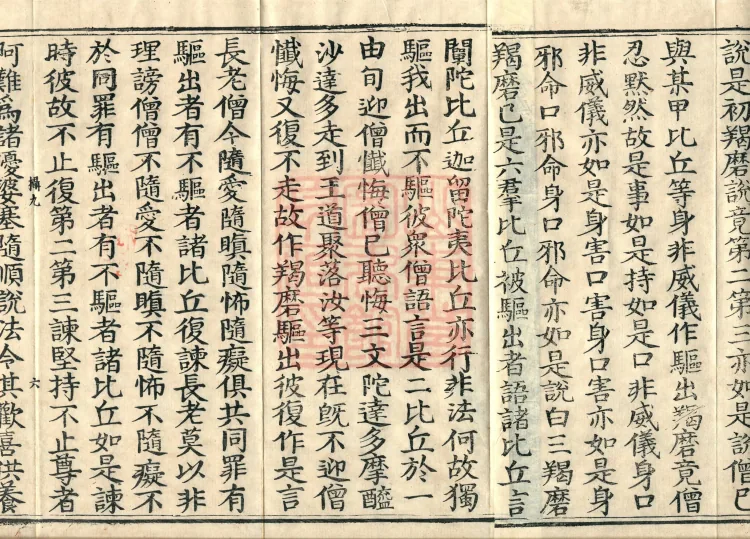 說是初羯磨說竟第二第三亦如是說僧已
與某甲比丘等身非威儀作驅出羯磨竟僧
忍默然故是事如是持如是口非威儀身口
非威儀亦如是身害口害身口害亦如是身
邪命口邪命身口邪命亦如是說白三羯磨
羯磨已是六羣比丘被驅出者語諸比丘言
闡陀比丘迦留陀夷比丘亦行非法何故獨
驅我出而不驅彼衆僧語言是二比丘於一
由旬迎僧懺悔僧已聽悔三文陀達多摩醯
沙達多走到王道聚落汝等現在旣不迎僧
懺悔又復不走故作羯磨驅出彼復作是言
長老僧今隨愛隨瞋隨怖隨癡俱共同罪有
驅出者有不驅者諸比丘復諫長老莫以非
理謗僧僧不隨愛不隨瞋不隨怖不隨癡不
於同罪有驅出者有不驅者諸比丘如是諫
時彼故不止復第二第三諫堅持不止尊者
攝九 六
阿難爲諸優婆塞隨順說法令其歡喜供養